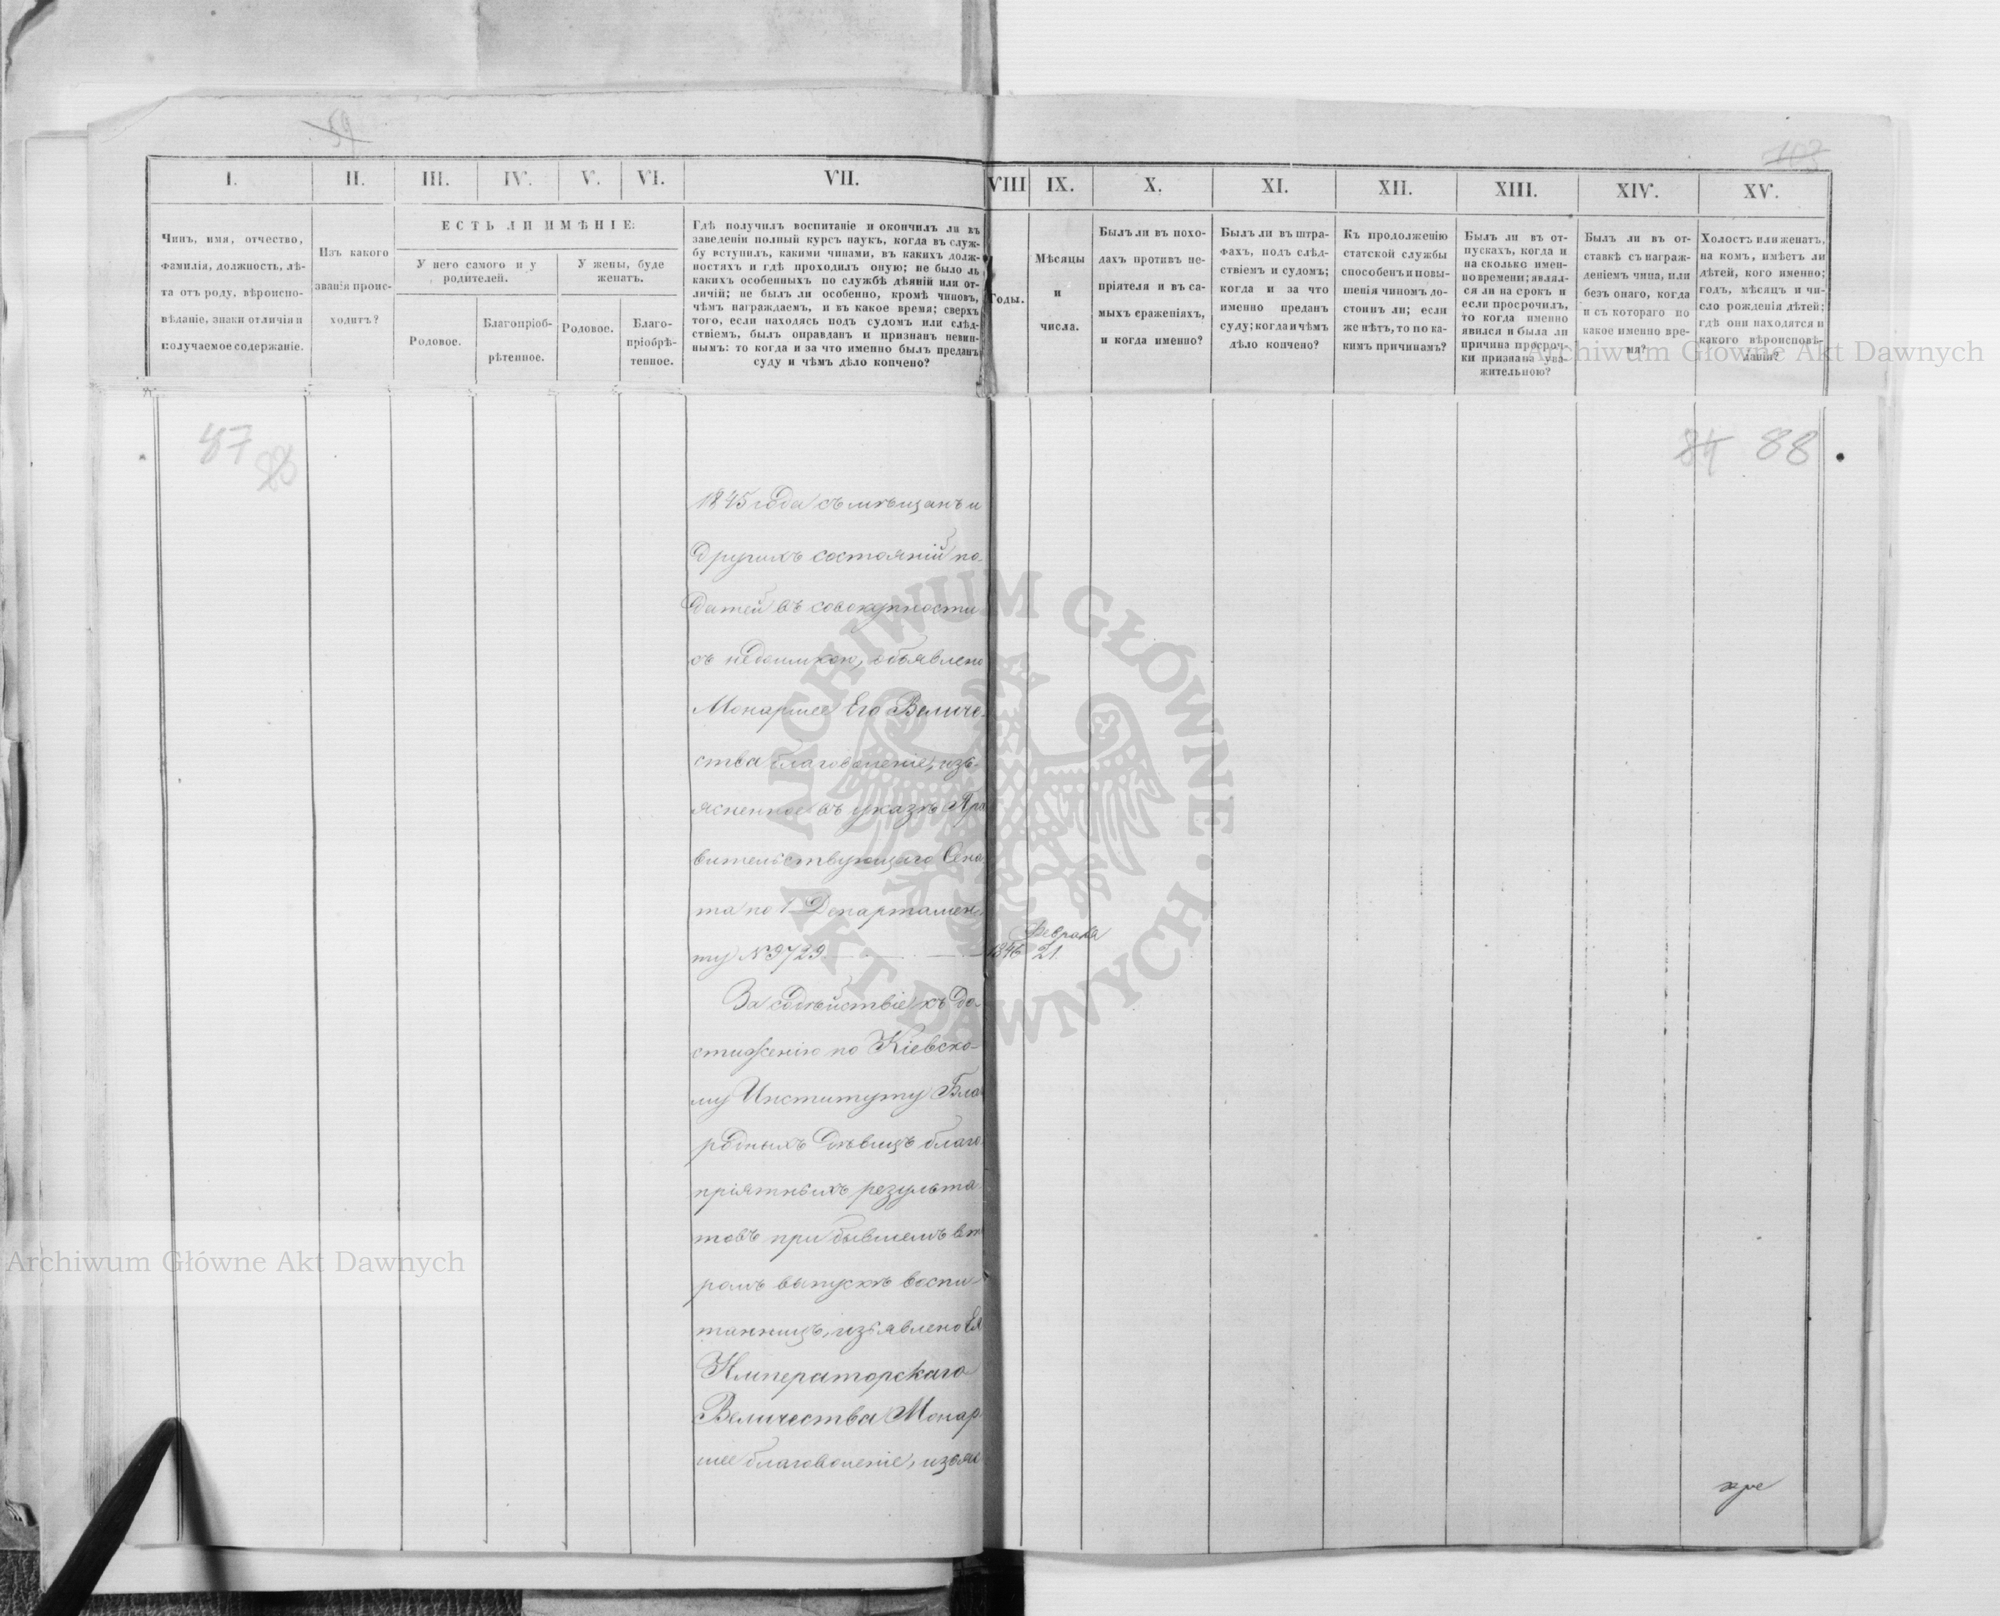 59
103
I.
II.
III.
IV.
V.
VI.
VII.
VIII
IX.
X.
XI.
XII.
XIII.
XIV.
XV.
Чинъ, имя, отчество,
фамилія, должность, лѣ-
та отъ роду, вѣроиспо-
вѣданіе, знаки отличія и
получаемое содержаніе.
Изъ какого
званія проис-
ходитъ?
ЕСТЬ ЛИ ИМѢНІЕ:
У него самого и у
родителей.
У жены, буде
женатъ.
Родовое.
Благопріоб-
рѣтенное.
Родовое.
Благо-
пріобрѣ-
тенное.
Гдѣ получилъ воспитаніе и окончилъ ли въ
заведеніи полный курсъ наукъ, когда въ служ-
бу вступилъ, какими чинами, въ какихъ долж-
ностяхъ и гдѣ проходилъ оную; не было ль
какихъ особенныхъ по службѣ дѣяній или от-
личій; не былъ ли особенно, кромѣ чиновъ,
чѣмъ награждаемъ, и въ какое время; сверхъ
того, если находясь подъ судомъ или слѣд-
ствіемъ, былъ оправданъ и признанъ невин-
нымъ: то когда и за что именно былъ преданъ
суду и чѣмъ дѣло кончено?
Годы.
Мѣсяцы
и
числа.
Былъ ли въ похо-
дахъ противъ не-
пріятеля и въ са-
мыхъ сраженіяхъ,
и когда именно?
Былъ ли въ штра-
фахъ, подъ слѣд-
ствіемъ и судомъ;
когда и за что
именно преданъ
суду; когда и чѣмъ
дѣло кончено?
Къ продолженію
статской службы
способенъ и повы-
шенія чиномъ до-
стоинъ ли; если
же нѣтъ, то по ка-
кимъ причинамъ?
Былъ ли въ от-
пускахъ, когда и
на сколько имен-
но времени; являл-
ся ли на срокъ и
если просрочилъ,
то когда именно
явился и была ли
причина просроч-
ки признана ува-
жительною?
Былъ ли въ от-
ставкѣ съ награж-
деніемъ чина, или
безъ онаго, когда
и съ котораго по
какое именно вре-
мя?
Холостъ или женатъ,
на комъ, имѣетъ ли
дѣтей, кого именно;
годъ, мѣсяцъ и чи-
сло рожденія дѣтей;
гдѣ они находятся и
какого вѣроисповѣ-
данія?
87
84 88
1845 года съ мѣщанъ и
другихъ состояній по-
датей въ совокупности
съ недоимкою, объявлено
Монаршее Его Величе-
ства благоволеніе, изъ-
ясненное въ указѣ Пра
вительствующаго Сена
та по 1 Департамен
ту № 9729
1846
Февраля
21.
За содѣйствіе къ до-
стиженію по Кіевско-
му Институту Бла
родныхъ дѣвицъ благо
пріятныхъ результа
товъ при бывшемъ вто
ромъ выпускѣ воспи-
танницъ, изъявлено Ея
Императорскаго
Величества Монар
шее благоволеніе, изъяс
Archiwum Główne Akt Dawnych
Archiwum Główne Akt Dawnych
ARCHIWUM GŁÓWNE · AKT DAWNYCH ·